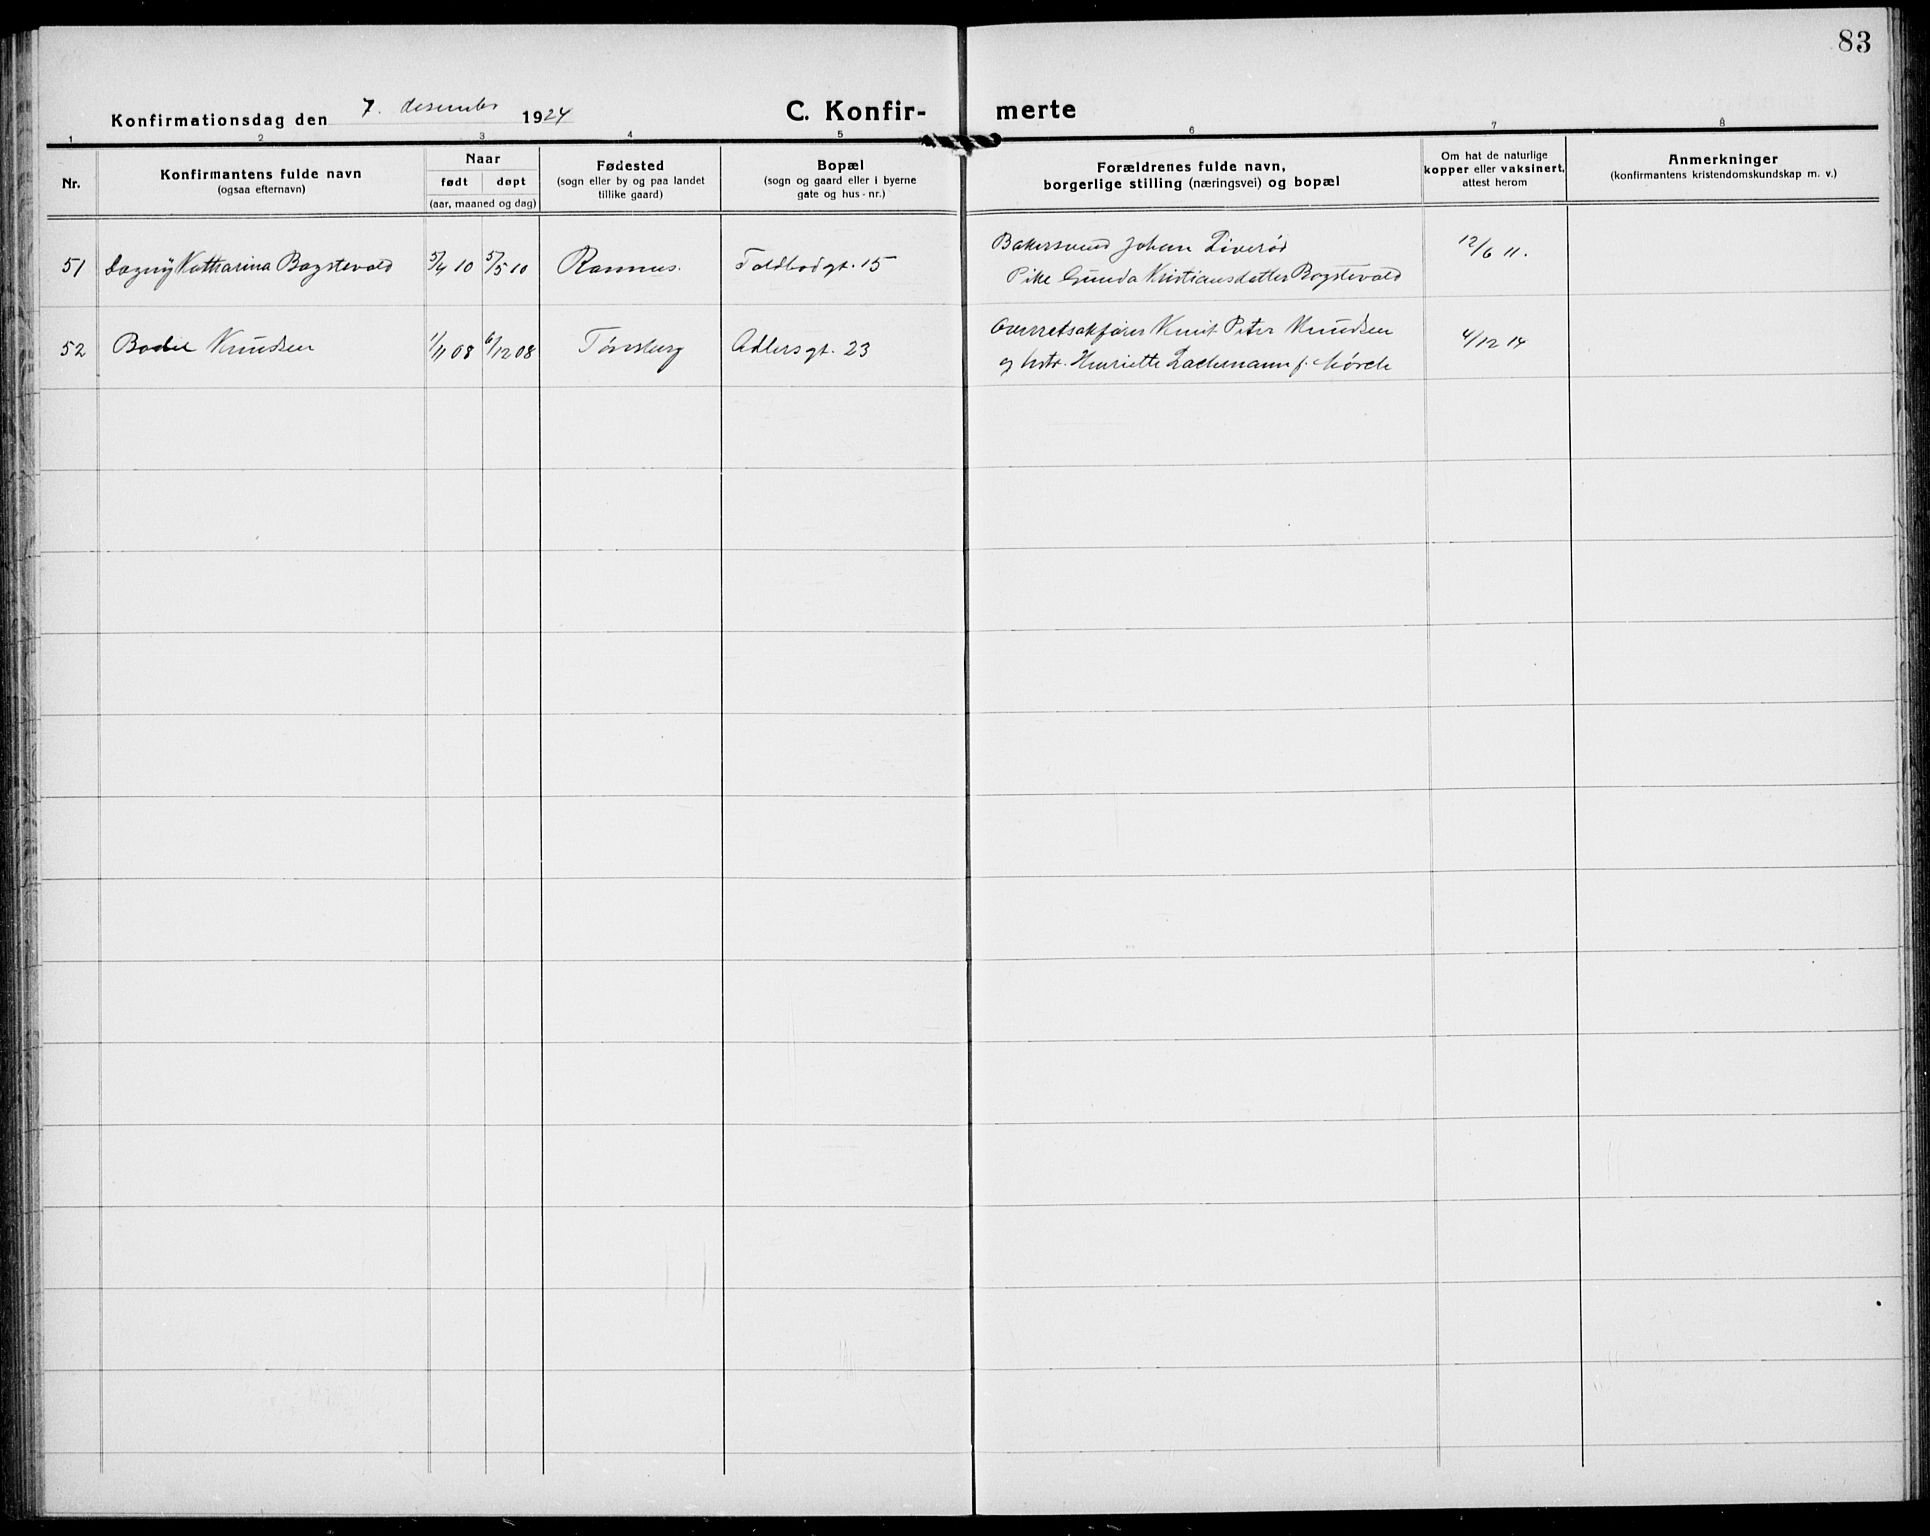 83
Konfirmationsdag den 7. desember 1924
C. Konfir- merte
1 2 3 4 5 6 7 8
Nr.
Konfirmantens fulde navn
(ogsaa efternavn)
Naar
født døpt
(aar, maaned og dag)
Fødested
(sogn eller by og paa landet
tillike gaard)
Bopæl
(sogn og gaard eller i byerne
gate og hus-nr.)
Forældrenes fulde navn,
borgerlige stilling (næringsvei) og bopæl
Om hat de naturlige
kopper eller vaksinert,
attest herom
Anmerkninger
(konfirmantens kristendomskundskap m. v.)
51 Dagny Katharina Bogstevold 5/4 10 5/5 10 Ramnes. Toldbodgt. 15
Bakersvend Johan Liverød
Pike Gunda Kristiansdatter Bogstevold
12/6 11.
52 Bodil Knudsen 1/11 08 6/12 08 Tønsberg Adlersgt. 23
Overretsakfører Knut Peter Knudsen
og hstr. Henriette Lachmann f. Mørch
4/12 14